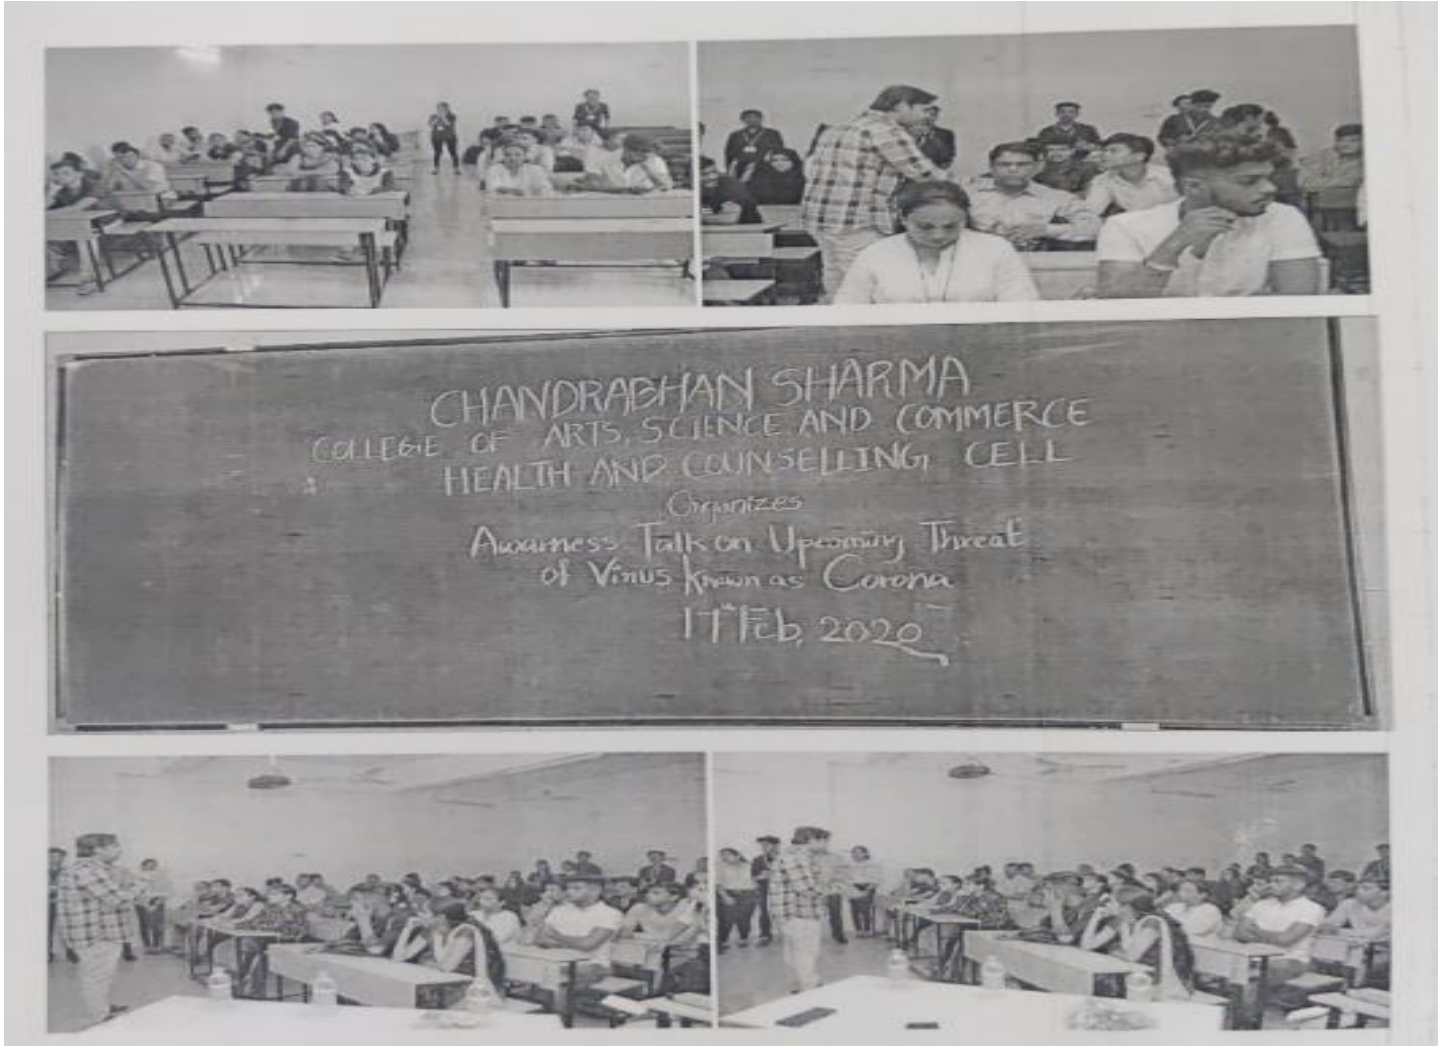 CHANDRABHAN SHARMA
COLLEGE OF ARTS, SCIENCE AND COMMERCE
HEALTH AND COUNSELLING CELL
Organizes
Awarness Talk on Upcoming Threat
of Virus known as Corona
17th Feb, 2020